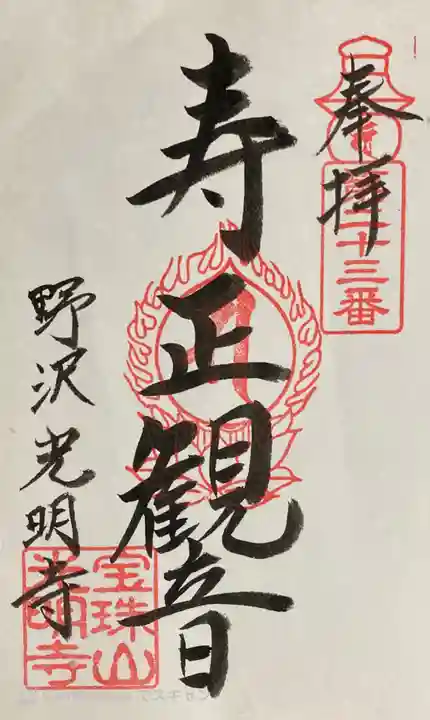 奉拝
二十三番
寿正観音
野沢光明寺
宝珠山
光明寺